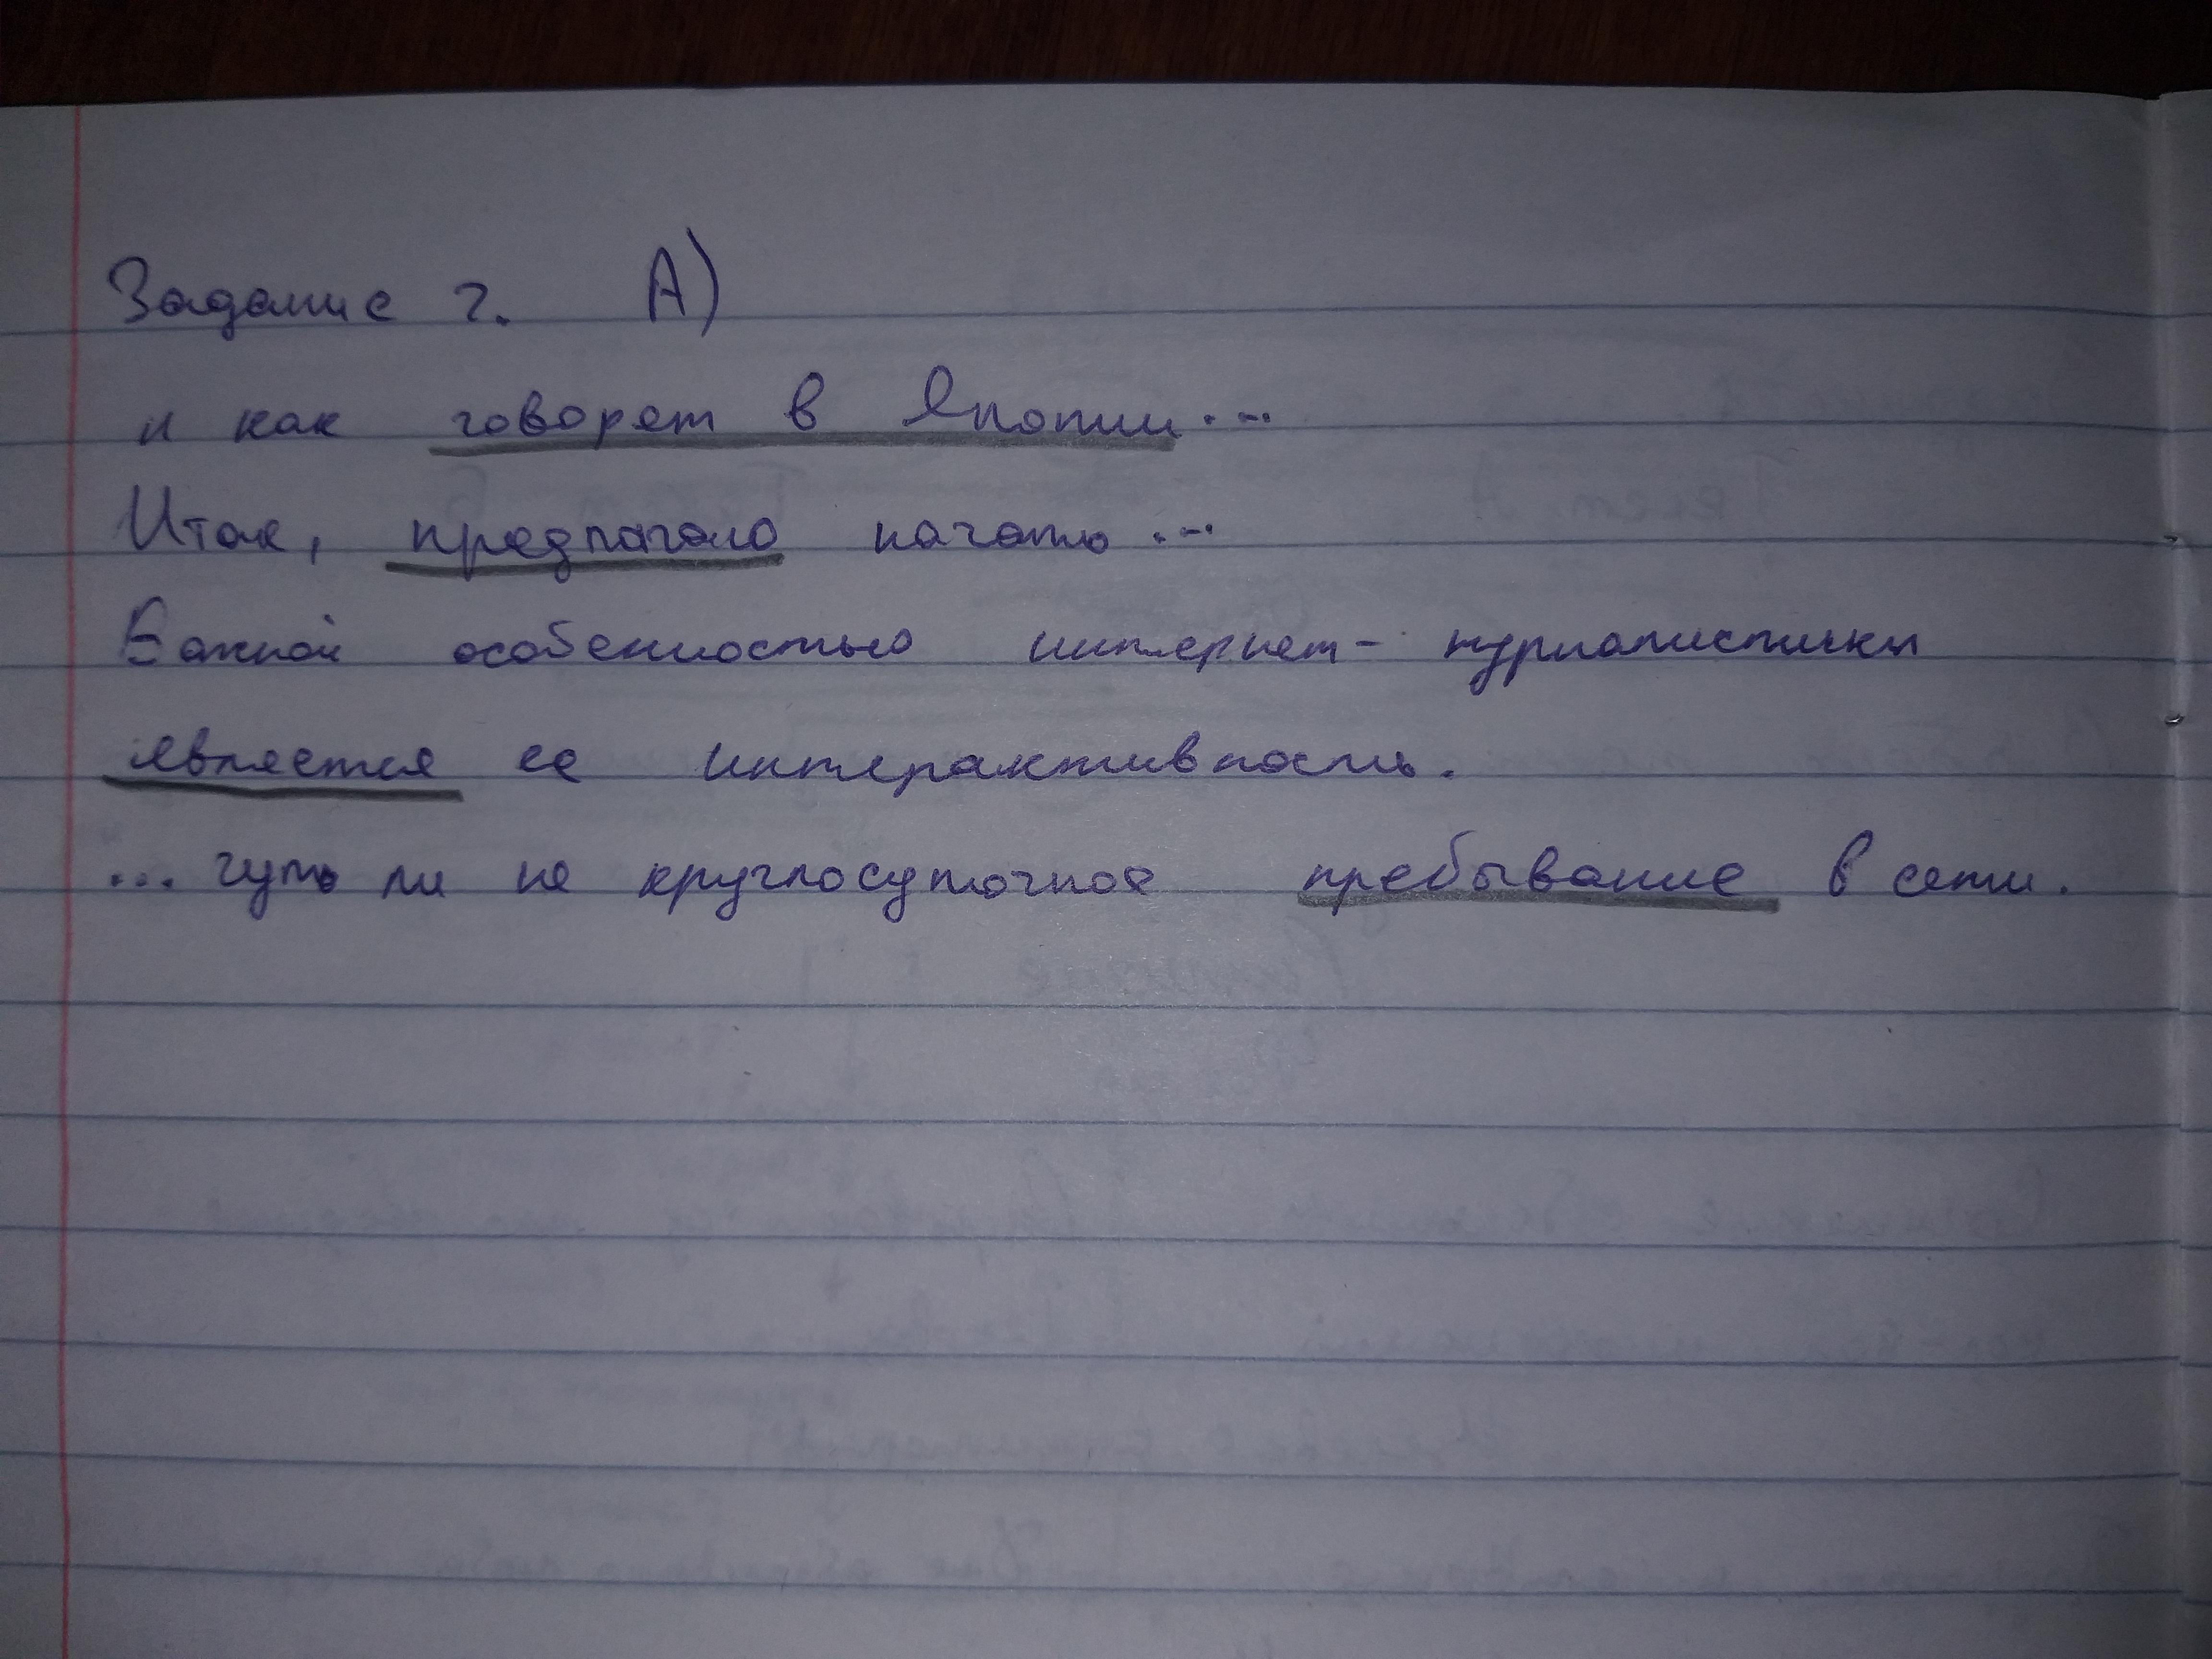 Задание 2. А)
и как говорят в Японии...
Итак, предлагаю начать...
Важной особенностью интернет-журналистики
является ее интерактивность.
... чуть ли не круглосуточное пребывание в сети.